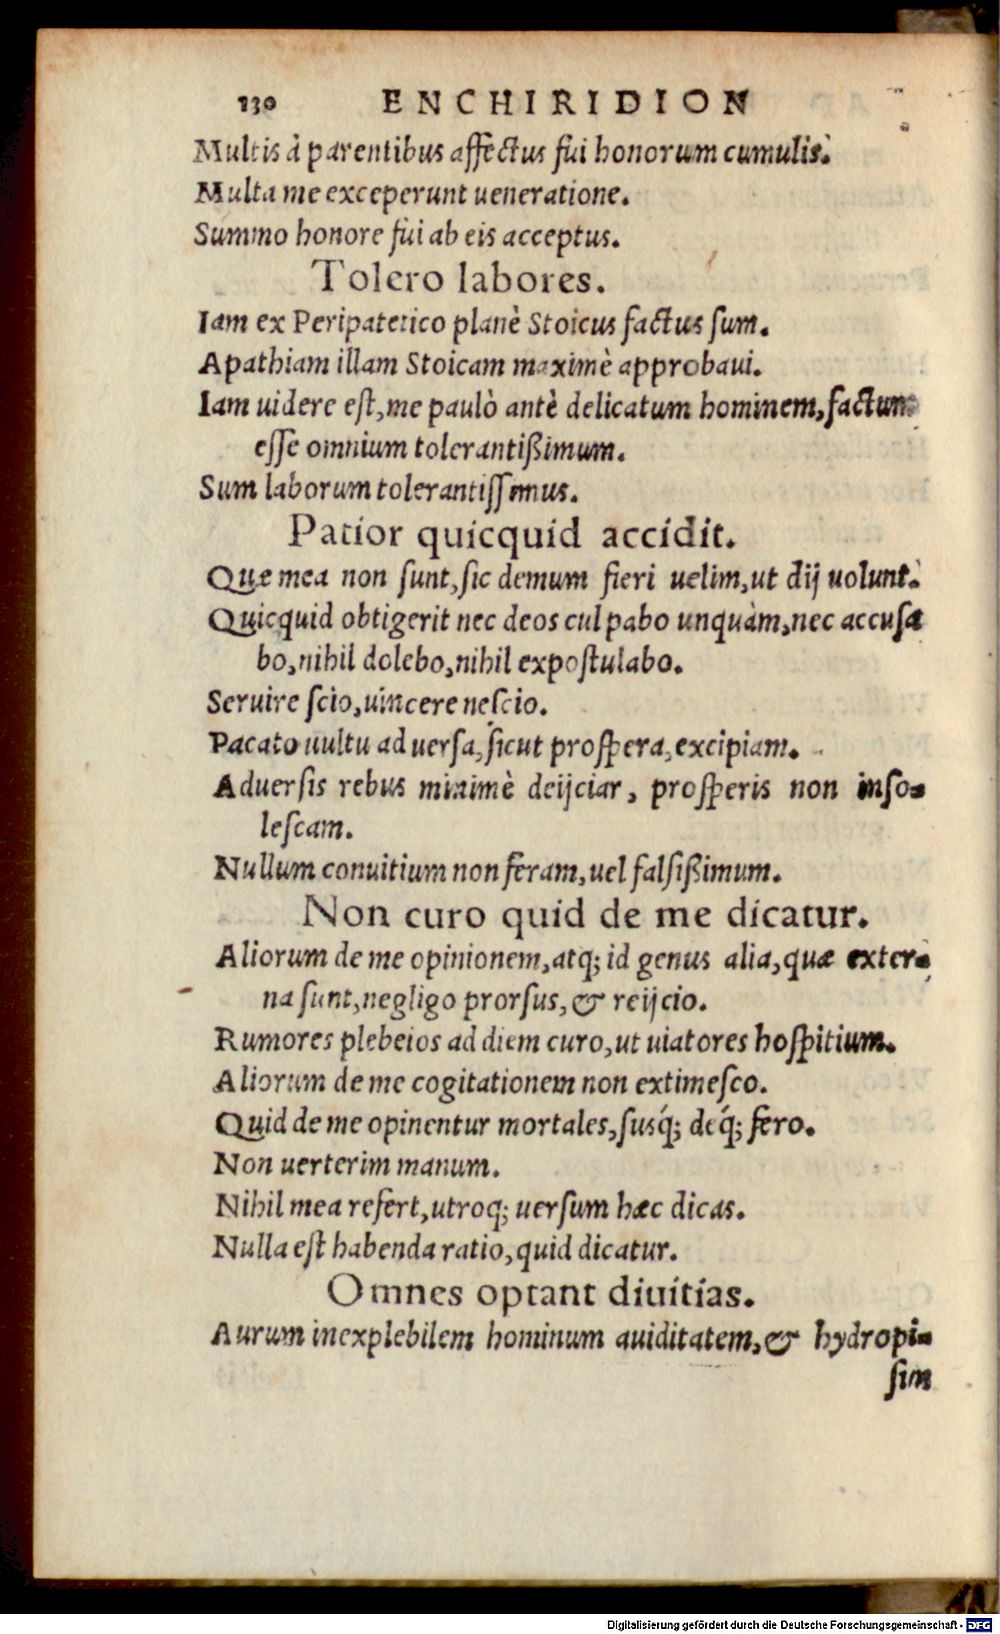 130 ENCHIRIDION
Multis à parentibus affectus fui honorum cumulis.
Multa me exceperunt ueneratione.
Summo honore fui ab eis acceptus.
Tolero labores.
Iam ex Peripatetico planè Stoicus factus sum.
Apathiam illam Stoicam maximè approbaui.
Iam uidere est, me paulò antè delicatum hominem, factum
esse omnium tolerantißimum.
Sum laborum tolerantissimus.
Patior quicquid accidit.
Quæ mea non sunt, sic demum fieri uelim, ut dij uolunt.
Quicquid obtigerit nec deos culpabo unquàm, nec accusa
bo, nihil dolebo, nihil expostulabo.
Seruire scio, uincere nescio.
Pacato uultu aduersa, sicut prospera, excipiam.
Aduersis rebus minimè deijciar, prosperis non inso-
lescam.
Nullum conuitium non feram, uel falsißimum.
Non curo quid de me dicatur.
Aliorum de me opinionem, atq; id genus alia, quæ exter-
na sunt, negligo prorsus, & reijcio.
Rumores plebeios ad diem curo, ut uiatores hospitium.
Aliorum de me cogitationem non extimesco.
Quid de me opinentur mortales, susq́; deq́; fero.
Non uerterim manum.
Nihil mea refert, utroq; uersum hæc dicas.
Nulla est habenda ratio, quid dicatur.
Omnes optant diuitias.
Aurum inexplebilem hominum auiditatem, & hydropi-
sin
Digitalisierung gefördert durch die Deutsche Forschungsgemeinschaft - DFG